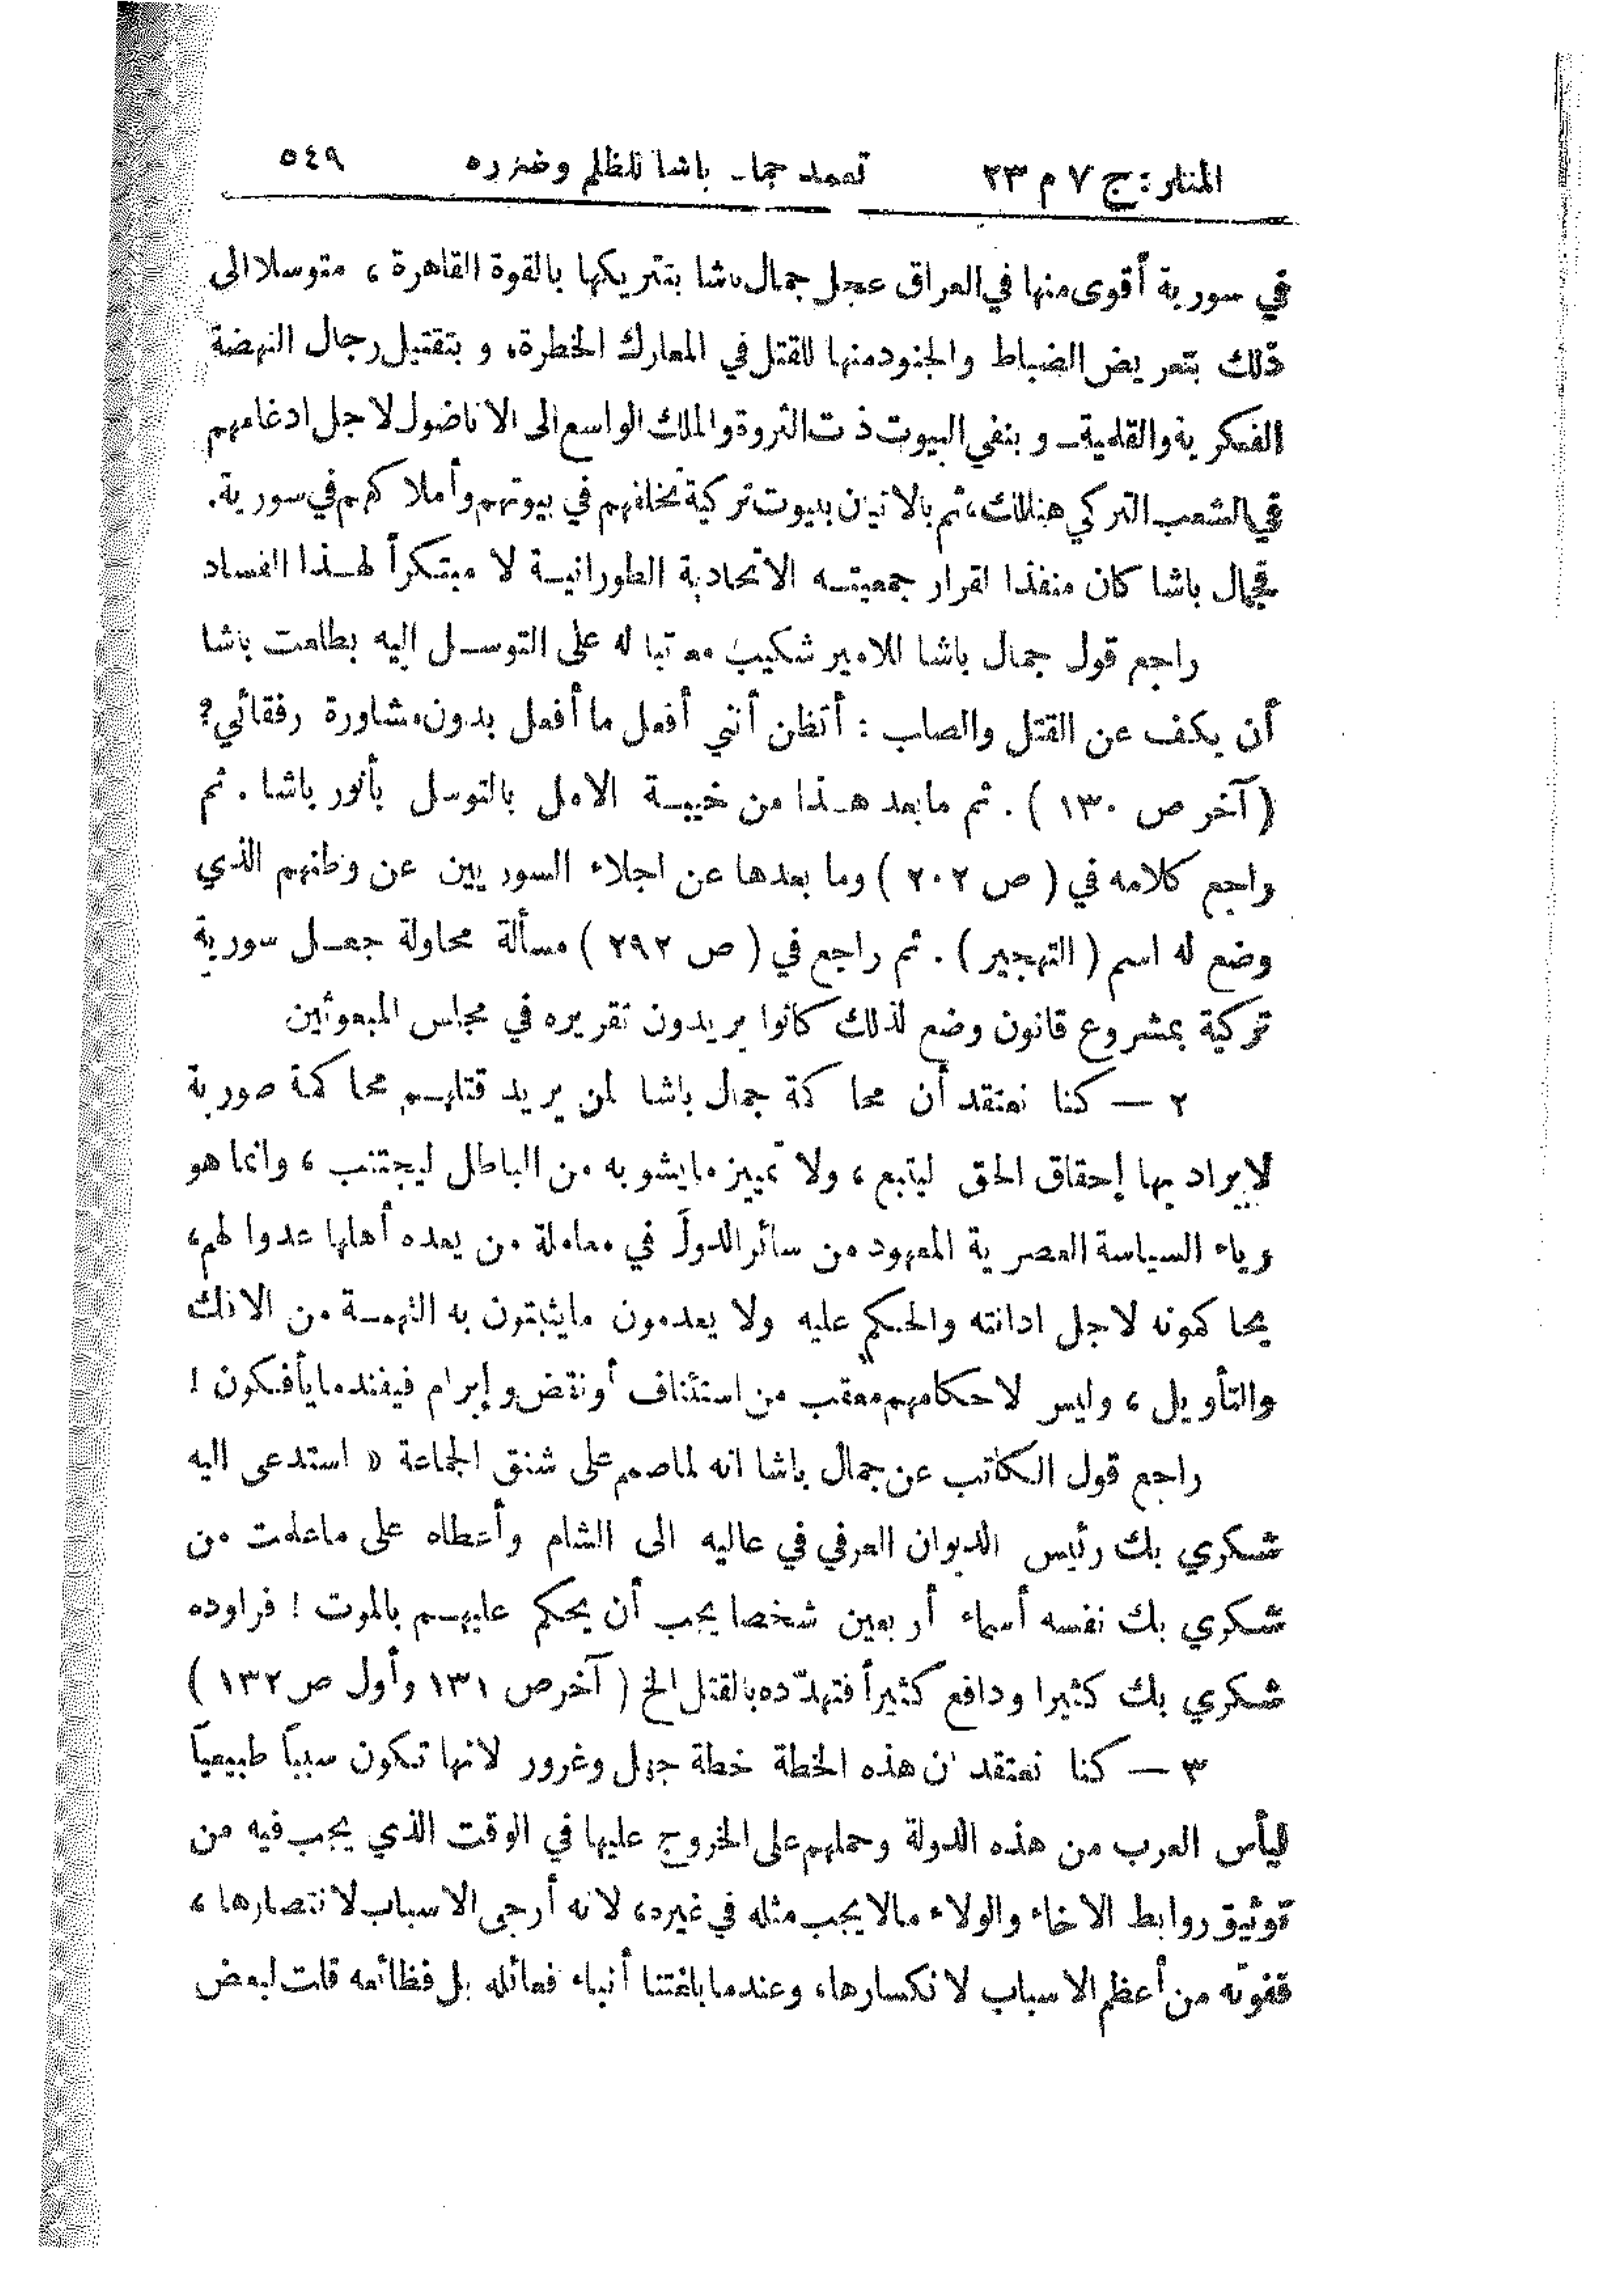 المنار: ج ٧ م ٢٣ تعمد جمال باشا للظلم وضرره ٥٤٩
في سورية أقوى منها في العراق عجل جمال باشا بتتريكها بالقوة القاهرة ، متوسلا الى
ذلك بتعريض الضباط والجنود منها للقتل في المعارك الخطرة، وبتقتيل رجال النهضة
الفكرية والقلمية ـ وبنفي البيوت ذت الثروة والملك الواسع الى الاناضول لاجل ادغامهم
في الشعب التركي هنالك، ثم بالاتيان ببيوت تركية تخلفهم في بيوتهم وأملاكهم في سورية.
فجمال باشا كان منفذا لقرار جمعيته الاتحادية الطورانية لا مبتكراً لهذا الفساد
راجع قول جمال باشا للامير شكيب معاتبا له على التوسل اليه بطلعت باشا
أن يكف عن القتل والصلب : أتظن أنني أفعل ما أفعل بدون مشاورة رفقائي؟
(آخر ص ١٣٠ ) . ثم ما بعد هذا من خيبة الامل بالتوسل بأنور باشا . ثم
راجع كلامه في ( ص ٢٠٢ ) وما بعدها عن اجلاء السوريين عن وطنهم الذي
وضع له اسم ( التهجير ) . ثم راجع في ( ص ٢٩٢ ) مسألة محاولة جعل سورية
تركية بمشروع قانون وضع لذلك كانوا يريدون تقريره في مجلس المبعوثين
٢ — كنا نعتقد أن محاكمة جمال باشا لمن يريد قتلهم محاكمة صورية
لا يراد بها إحقاق الحق ليتبع ، ولا تمييز ما يشوبه من الباطل ليجتنب ، وانما هو
رياء السياسة العصرية المعهود من سائر الدول في معاملة من يعده أهلها عدوا لهم،
يحاكمونه لاجل ادانته والحكم عليه ولا يعدمون ما يثبتون به التهمة من الافك
والتأويل ، وليس لاحكامهم معقب من استئناف أو نقض وإبرام فيفند ما يأفكون !
راجع قول الكاتب عن جمال باشا انه لما صمم على شنق الجماعة « استدعى اليه
شكري بك رئيس الديوان العرفي في عاليه الى الشام وأعطاه على ما علمت من
شكري بك نفسه أسماء أربعين شخصا يجب أن يحكم عليهم بالموت ! فراوده
شكري بك كثيرا ودافع كثيراً فتهدّده بالقتل الخ ( آخر ص ١٣١ وأول ص ١٣٢ )
٣ — كنا نعتقد ان هذه الخطة خطة جهل وغرور لانها تكون سبباً طبيعياً
ليأس العرب من هذه الدولة وحملهم على الخروج عليها في الوقت الذي يجب فيه من
توثيق روابط الاخاء والولاء ما لا يجب مثله في غيره، لانه أرجى الاسباب لانتصارها ،
ففوته من أعظم الاسباب لانكسارها، وعندما بلغتنا أنباء فعائله بل فظائعه قلت لبعض